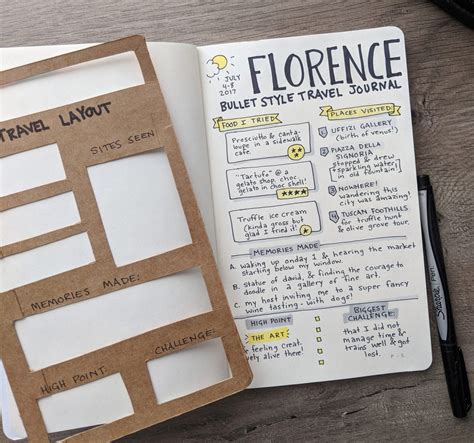 TRAVEL LAYOUT
SITES SEEN
MEMORIES MADE:
HIGH POINT:
CHALLENGE:
JULY
4-8
2017
FLORENCE
BULLET STYLE TRAVEL JOURNAL
FOOD I TRIED
Prosciutto & canta-
loupe in a sidewalk
cafe.
"Tartufo" @ a
gelato shop, choc.
gelato in choc shell!
Truffle ice cream
(kinda gross but
glad I tried it!)
PLACES VISITED
1 UFFIZI GALLERY
(birth of venus!)
2 PIAZZA DELLA
SIGNORIA
stopped & drew
sparkling water
in old fountain
3 NOWHERE!
wandering this
city was amazing!
4 TUSCAN FOOTHILLS
for truffle hunt
& olive grove tour.
MEMORIES MADE
A. waking up on day 1 & hearing the market
starting below my window.
B. statue of david, & finding the courage to
doodle in a gallery of fine art.
C. my host inviting me to a super fancy
wine tasting - with dogs!
HIGH POINT
THE ART
feeling creat-
ively alive there!
BIGGEST
CHALLENGE:
that I did not
manage time &
trains well & got
lost.
Sharpie